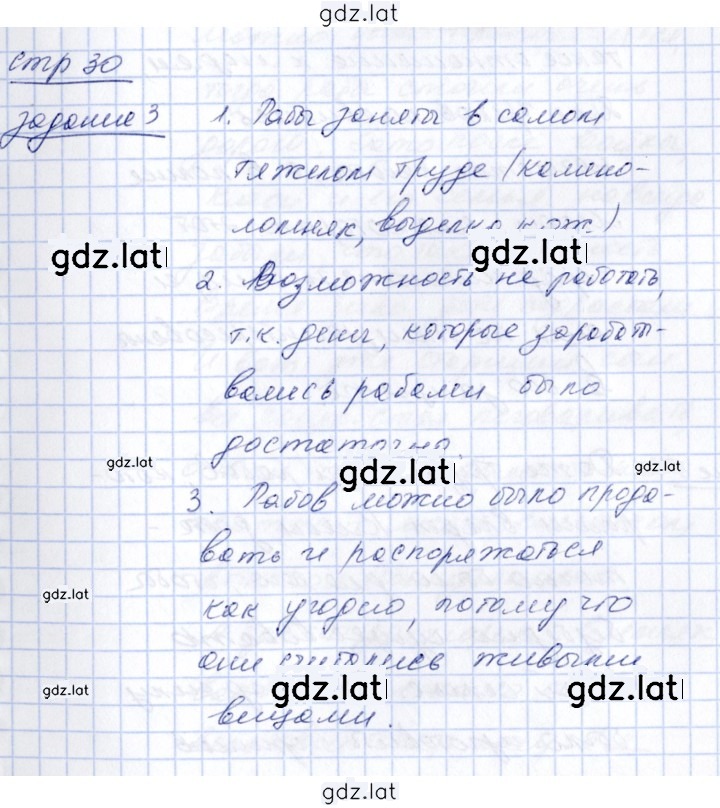 gdz.lat
стр 30
задание 3
1. Рабы заняты в самом
тяжелом труде (камено-
ломняк, выделка кож)
gdz.lat
gdz.lat
2. Возможность не работать,
т.к. денег, которые зарабат-
вались рабами было
достаточно.
gdz.lat
gdz.lat
gdz.lat
3. Рабов можно было прода-
вать и распоряжаться
gdz.lat
как угодно, потому что
они считались живыми
gdz.lat
gdz.lat
gdz.lat
вещами.
gdz.lat